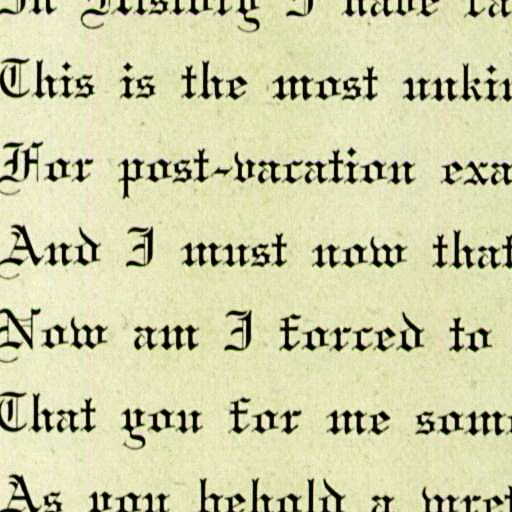 In History I have ta
This is the most unkin
For post-vacation exa
And I must now that
Now am I forced to
That you for me some
As you behold a wret